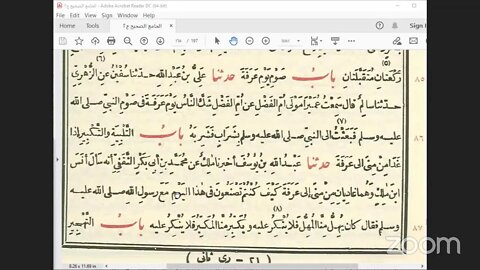 الجامع الصحيح ج٢ - Adobe Acrobat Reader DC (64-bit)
Home Tools الجامع الصحيح ج٢ × Sign In
/ 197
(٥) (٦)
ركعتان متقبلتان باب صوم يوم عرفة حدثنا علي بن عبد الله حدثنا سفين عن الزهري ٨٥
حدثنا سالم قال سمعت عميرا مولى ام الفضل عن ام الفضل شك الناس يوم عرفة في صوم النبي صلى الله
(٧)
عليه وسلم فبعثت الى النبي صلى الله عليه وسلم بشراب فشربه باب التلبية والتكبير اذا ٨٦
غدا من منى الى عرفة حدثنا عبد الله بن يوسف اخبرنا ملك عن محمد بن ابي بكر الثقفي انه سال انس
ابن ملك وهما غاديان من منى الى عرفة كيف كنتم تصنعون في هذا اليوم مع رسول الله صلى الله عليه
(٨)
وسلم فقال كان يهل منا المهل فلا ينكر عليه ويكبر منا المكبر فلا ينكر عليه باب التهجير ٨٧
(٢١ - رى ثانى)
8.26 x 11.69 in
zoom